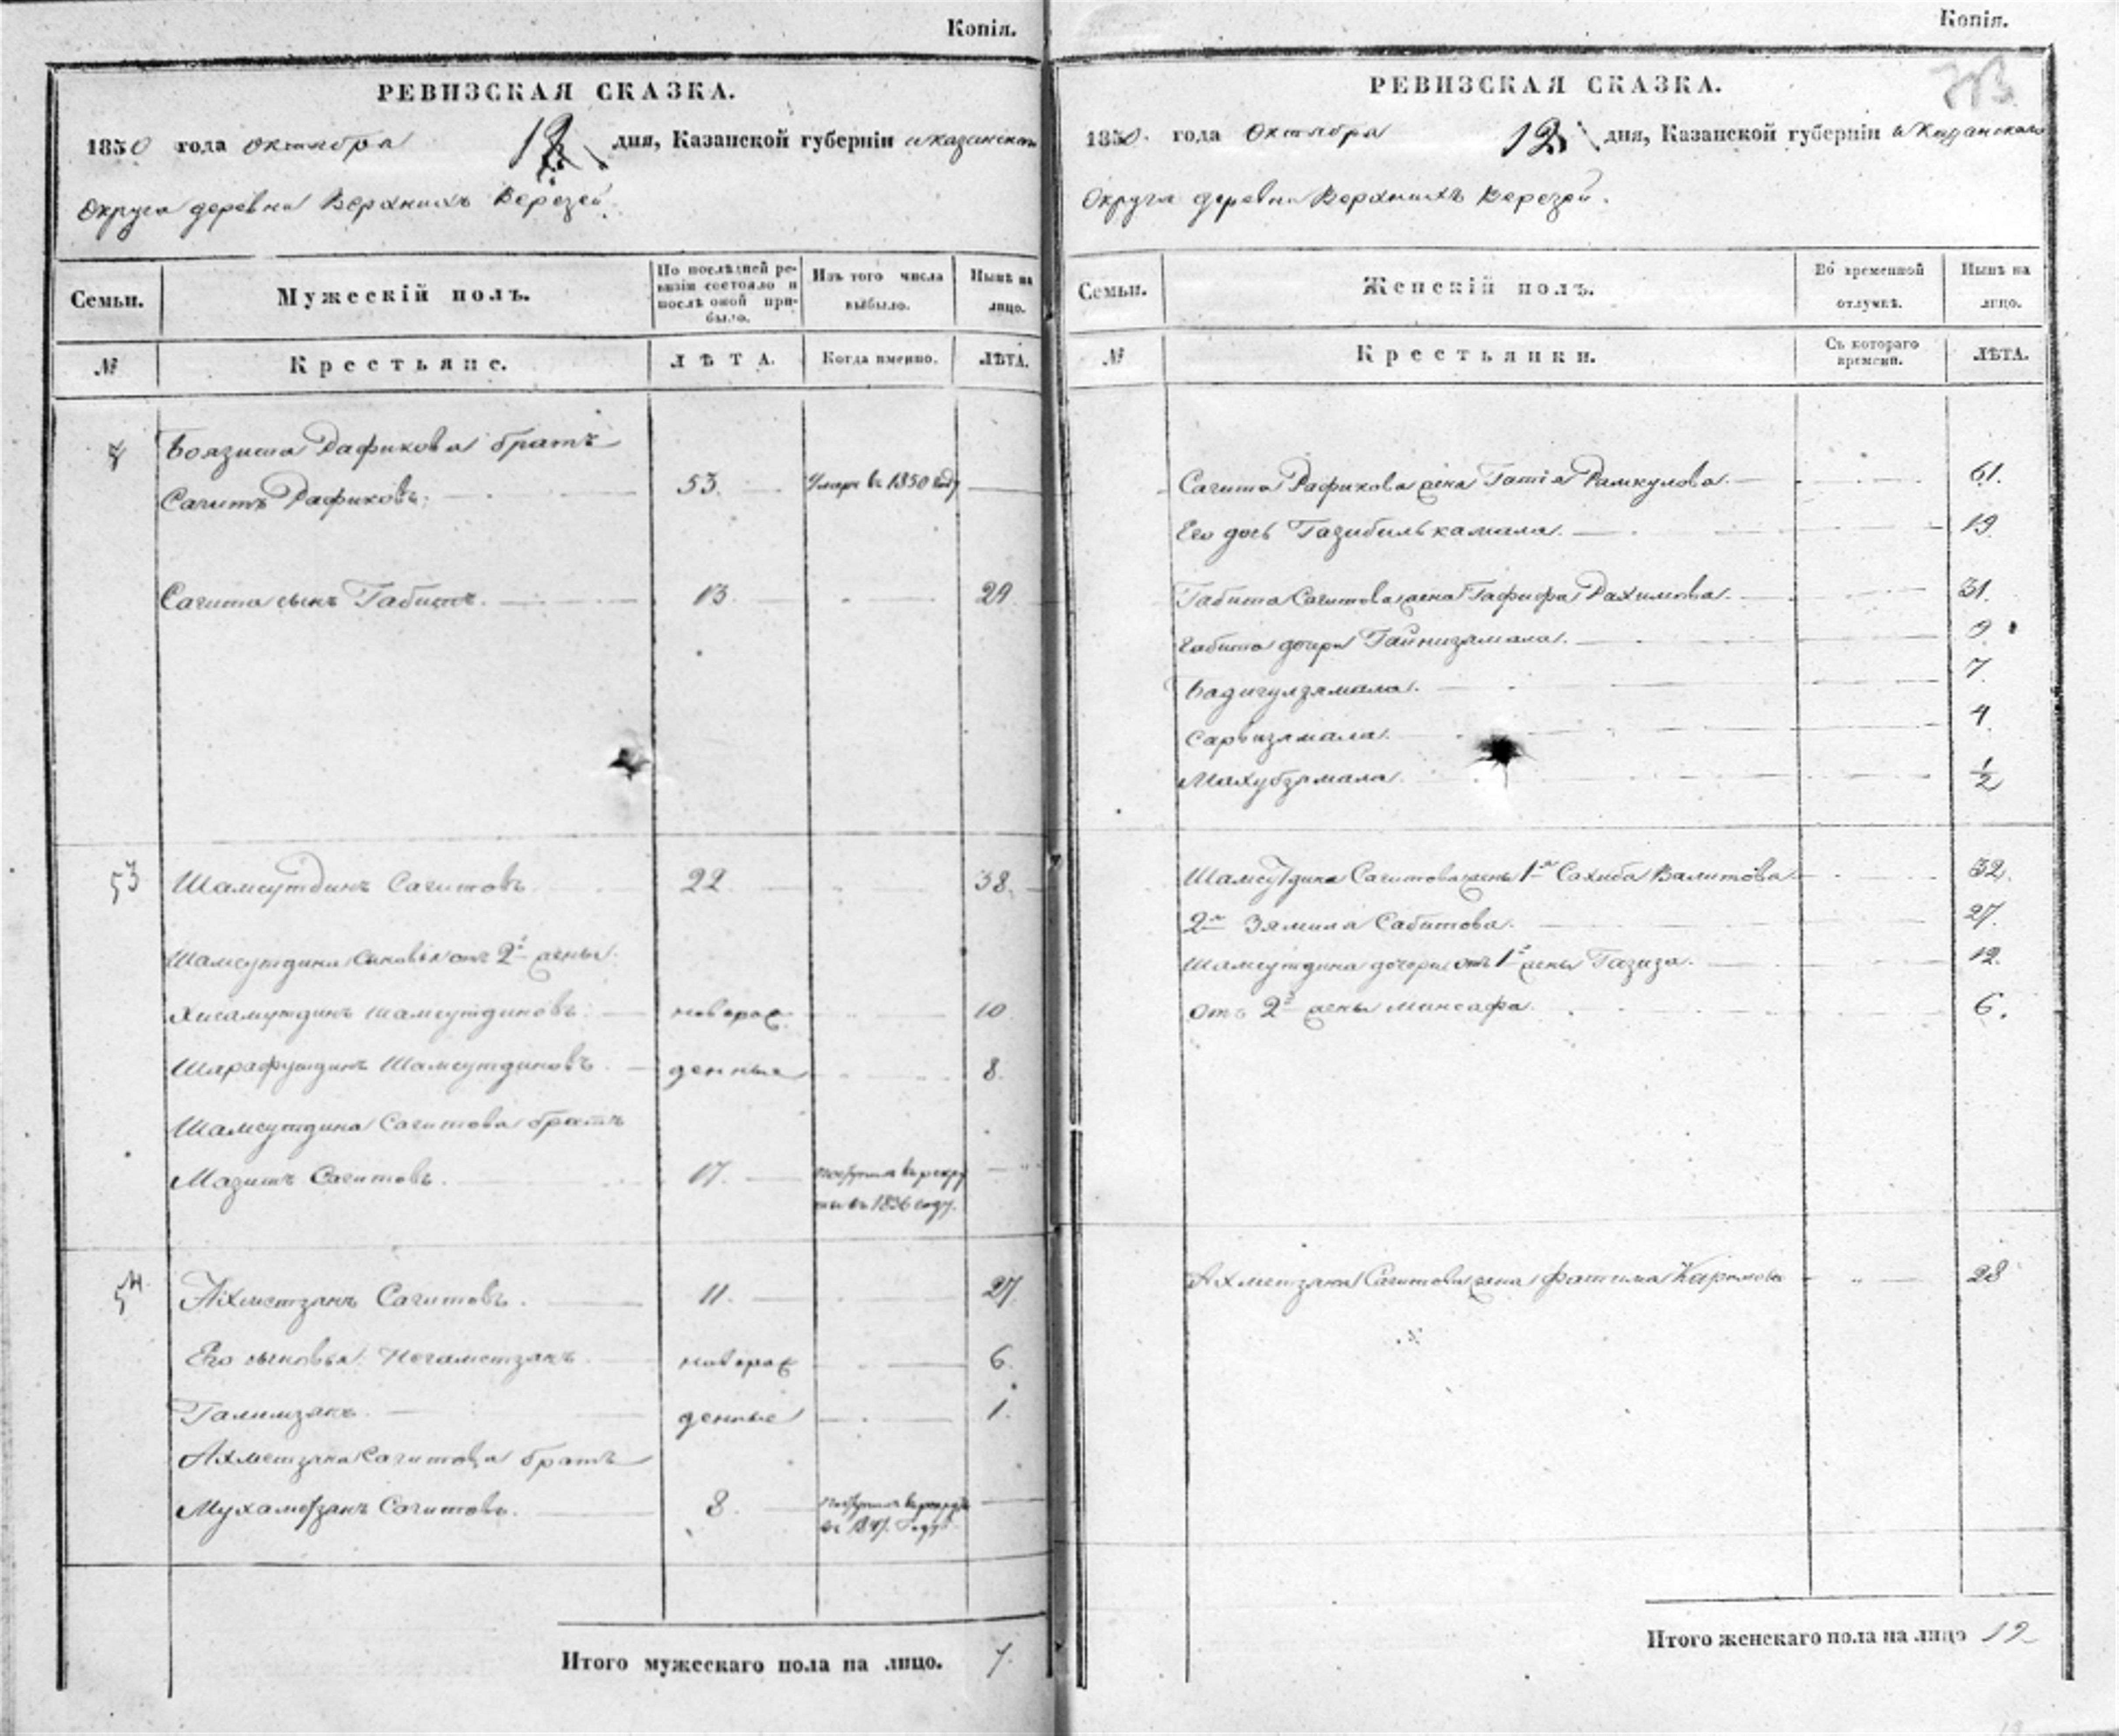 Копія.
РЕВИЗСКАЯ СКАЗКА.
1850 года Октября 12 дня, Казанской губерніи и Казанскаго
Округа деревни Верхнихъ Верезей.
Семьи.
Мужескій полъ.
По послѣдней ре-
визіи состояло и
послѣ оной при-
было.
Изъ того числа
выбыло.
Нынѣ на
лицо.
№
Крестьяне.
ЛѢТА.
Когда именно.
ЛѢТА.
Рафикова братъ
Сагитъ Рафиковъ. 53. Умеръ въ 1850 году
Сагита сынъ Габитъ. 13 29
53 Шамсутдинъ Сагитовъ 22 38.
Шамсутдина сыновья отъ 2й жены
Хисамутдинъ Шамсутдиновъ новорож 10
Шарафутдинъ Шамсутдиновъ денные 8.
Шамсутдина Сагитова братъ
Мазитъ Сагитовъ. 17. поступилъ въ рекру
ты въ 1836 году.
54 Ахметзянъ Сагитовъ. 11. 27
Его сыновья: Негаметзянъ новорож 6.
Галимзянъ денные 1.
Ахметзяна Сагитова братъ
Мухаметзянъ Сагитовъ. 8. поступилъ въ рекруты
въ 1847. году
Итого мужескаго пола на лицо. 7.
Копія.
РЕВИЗСКАЯ СКАЗКА.
1850 года Октября 12 дня, Казанской губерніи и Казанскаго
Округа деревни Верхнихъ Верезей.
Семьи.
Женскій полъ.
Во временной
отлучкѣ.
Нынѣ на
лицо.
№
Крестьянки.
Съ котораго
времени.
ЛѢТА.
Сагита Рафикова жена Гатіа Рамкулова. 61.
Его дочь Газибилькамала. 19
Габита Сагитова жена Гафифа Рахимова. 31.
Габита дочери Гайнизямала. 9
Бадигулзямала. 7.
Сарвизямала. 4.
Махубзямала. 1/2
Шамсутдина Сагитова жены 1я Сахиба Валитова 32.
2я Зямила Сабитова. 27.
Шамсутдина дочери отъ 1й жены Газиза. 12.
отъ 2й жены Минсафа. 6.
Ахметзяна Сагитова жена Фатима Каримова 28
Итого женскаго пола на лицо 12